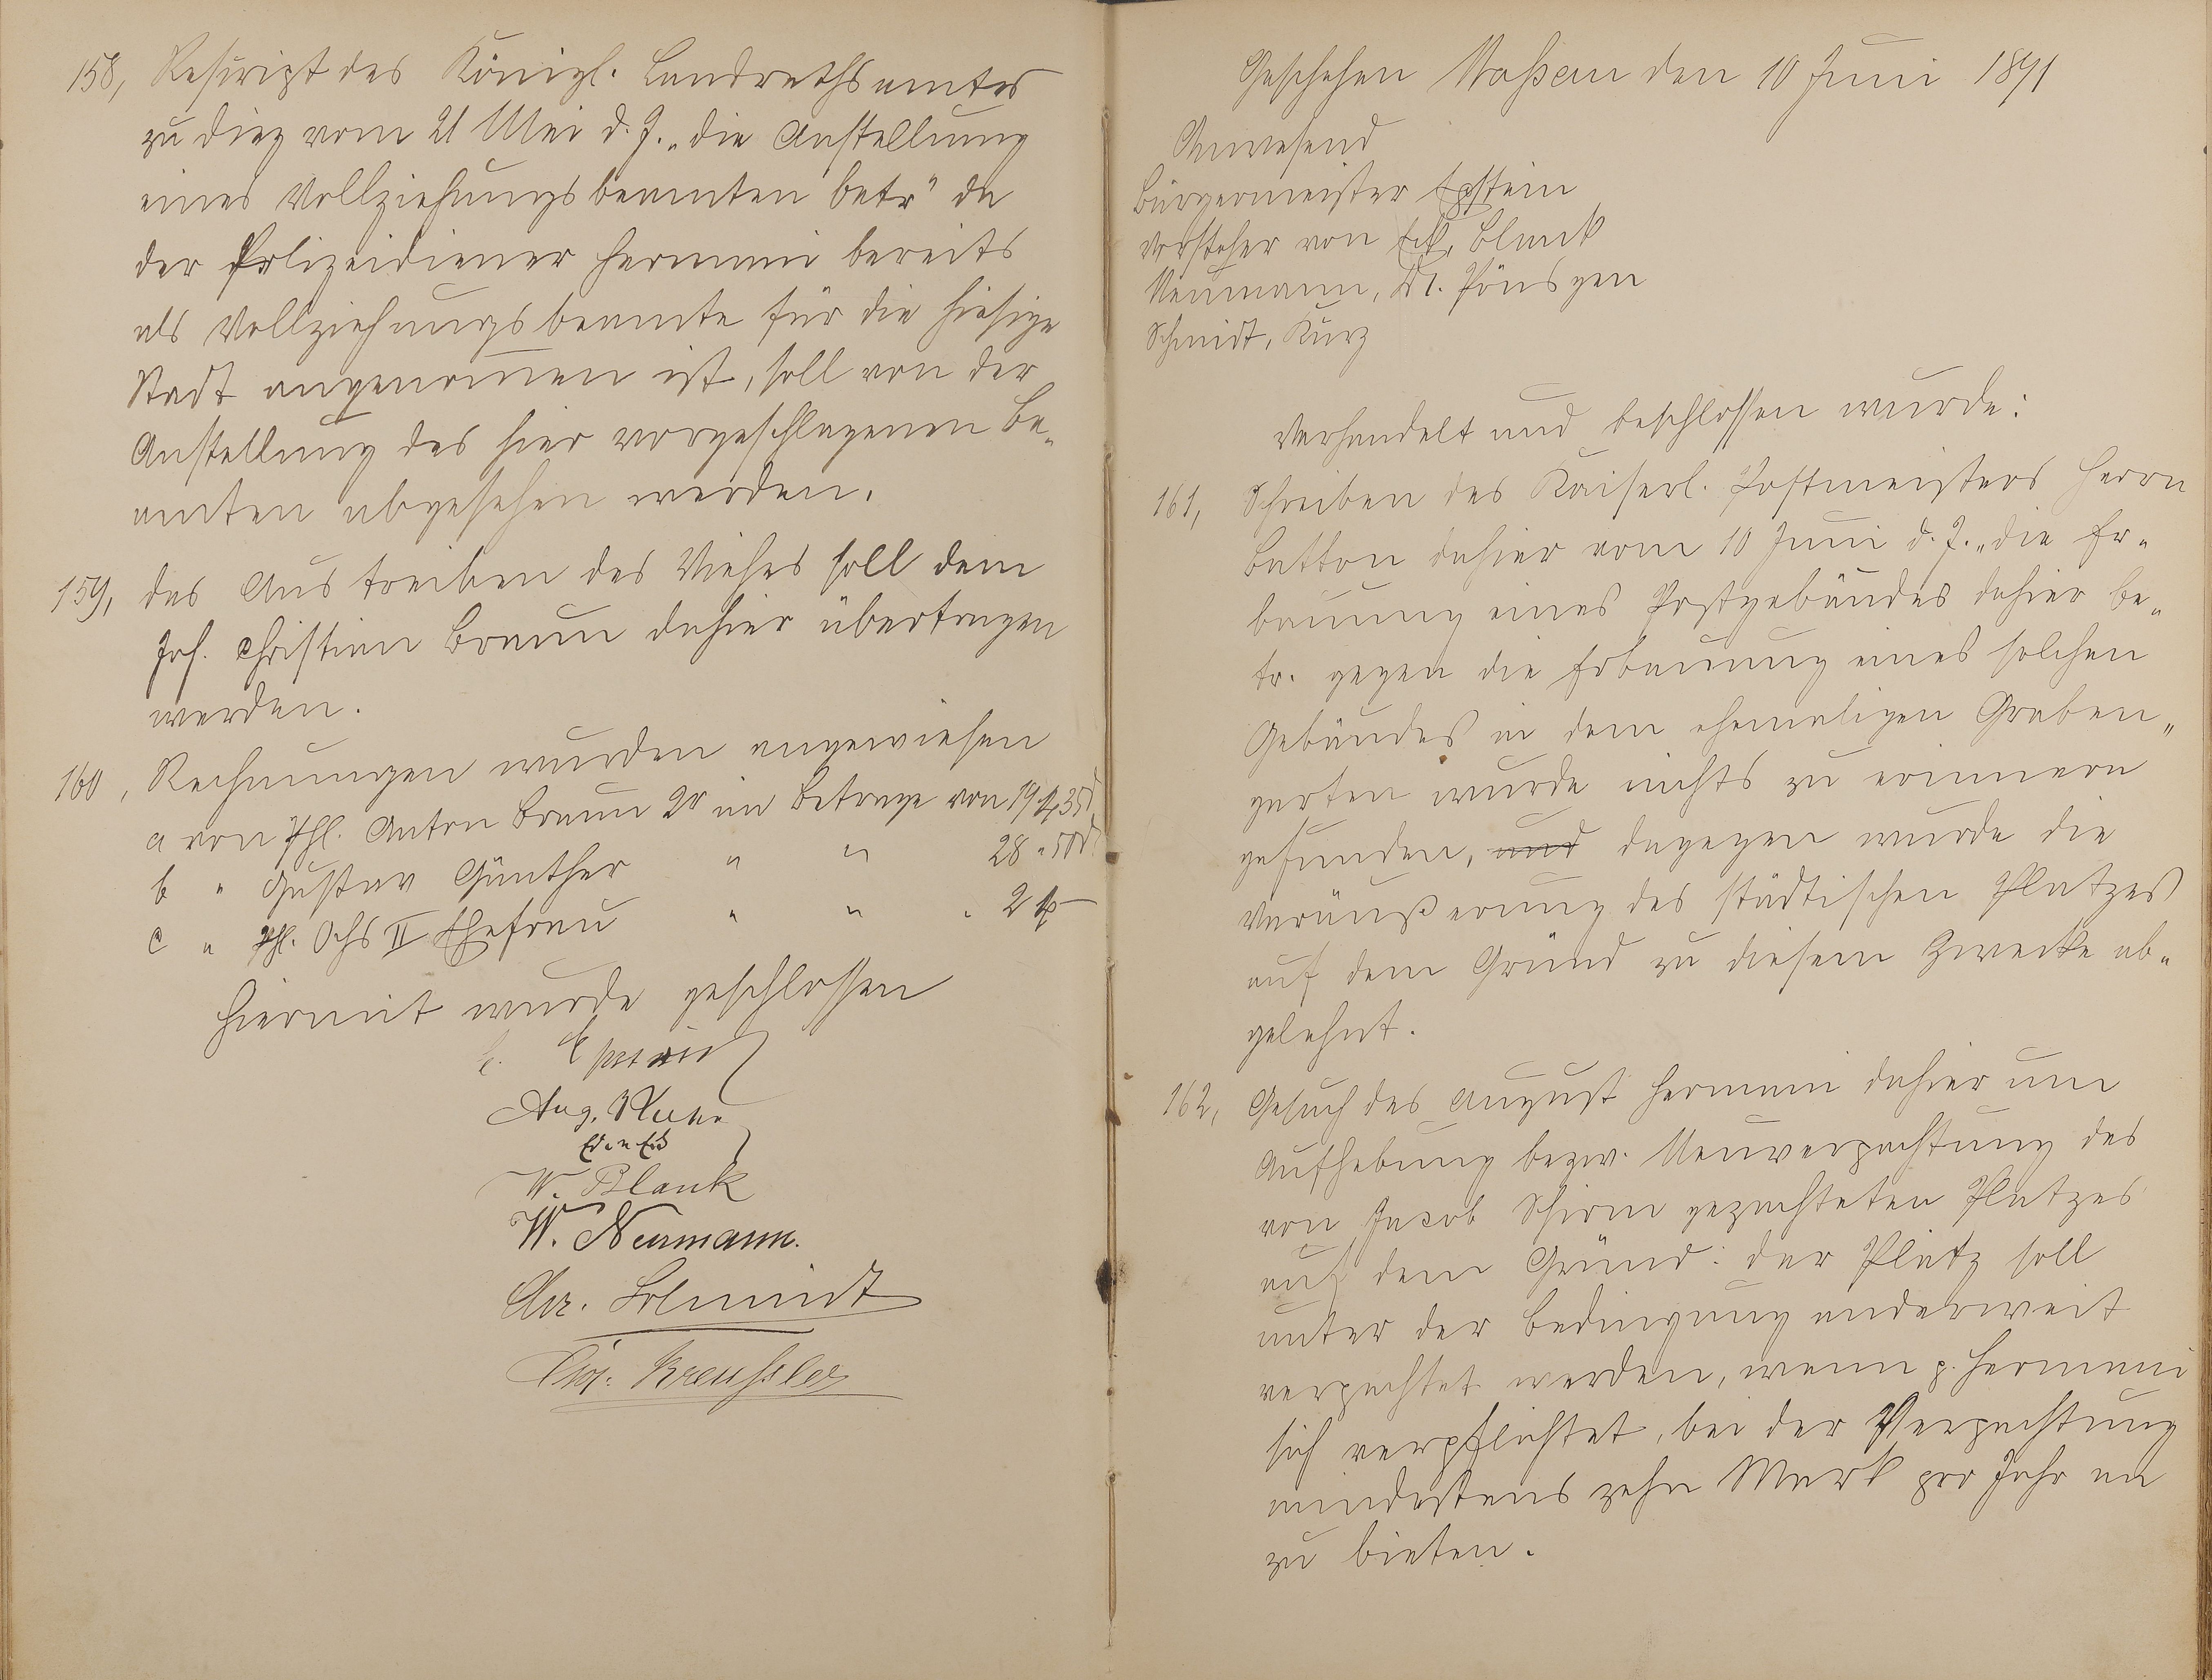 158, Rescript des Königl. Landrathsamtes
zu Diez vom 21 Mai d. J. „die Anstellung
eines Vollziehungsbeamten betr" da
der Polizeidiener Hermani bereits
als Vollziehungsbeamte für die hiesige
Stadt angenom̅en ist, soll von der
Anstellung des hier vorgeschlagenen Be„
amten abgesehen werden.
159, das Austreiben des Viehes soll dem
Joh. Christian Braun dahier übertragen
werden.
160, Rechnungen wurden angewiesen
a von Phl. Anton Braun 2r im Betrage von 19 M 35 d
b " Gustav Günther " " 28 " 50 d
c " Phl. Ochs II Ehefrau " " " 2 M —
Hiermit wurde geschlossen
E. Epstein
Aug. Kuhn
W. Blank
W. Neumann.
Chr. Schmidt
Chr. Kreußler
Geschehen Naßau den 10 Juni 1891
Anwesend
Bürgermeister Epstein
Vorsteher von Eck, Blank
Neumann, Dr. Pönsgen
Schmidt, Kurz
Verhandelt und beschlossen wurde:
161, Schreiben des Kaiserl. Postmeisters Herrn
Batton dahier vom 10 Juni d. J. „die Er„
bauung eines Postgebäudes dahier be„
tr. gegen die Erbauung eines solchen
Gebäudes in dem ehemaligen Graben„
garten wurde nichts zu erinnern
gefunden, und dagegen wurde die
Veräußerung des städtischen Platzes
auf dem Gründ zu diesem Zwecke ab„
gelehnt.
162, Gesuch des August Hermani dahier um
Aufhebung bezw. Neuverpachtung des
von Jacob Schirm gepachteten Platzes
auf dem Gründ: der Platz soll
unter der Bedingung anderweit
verpachtet werden, wenn p. Hermani
sich verpflichtet, bei der Verpachtung
mindestens zehn Mark pro Jahr an
zu bieten.